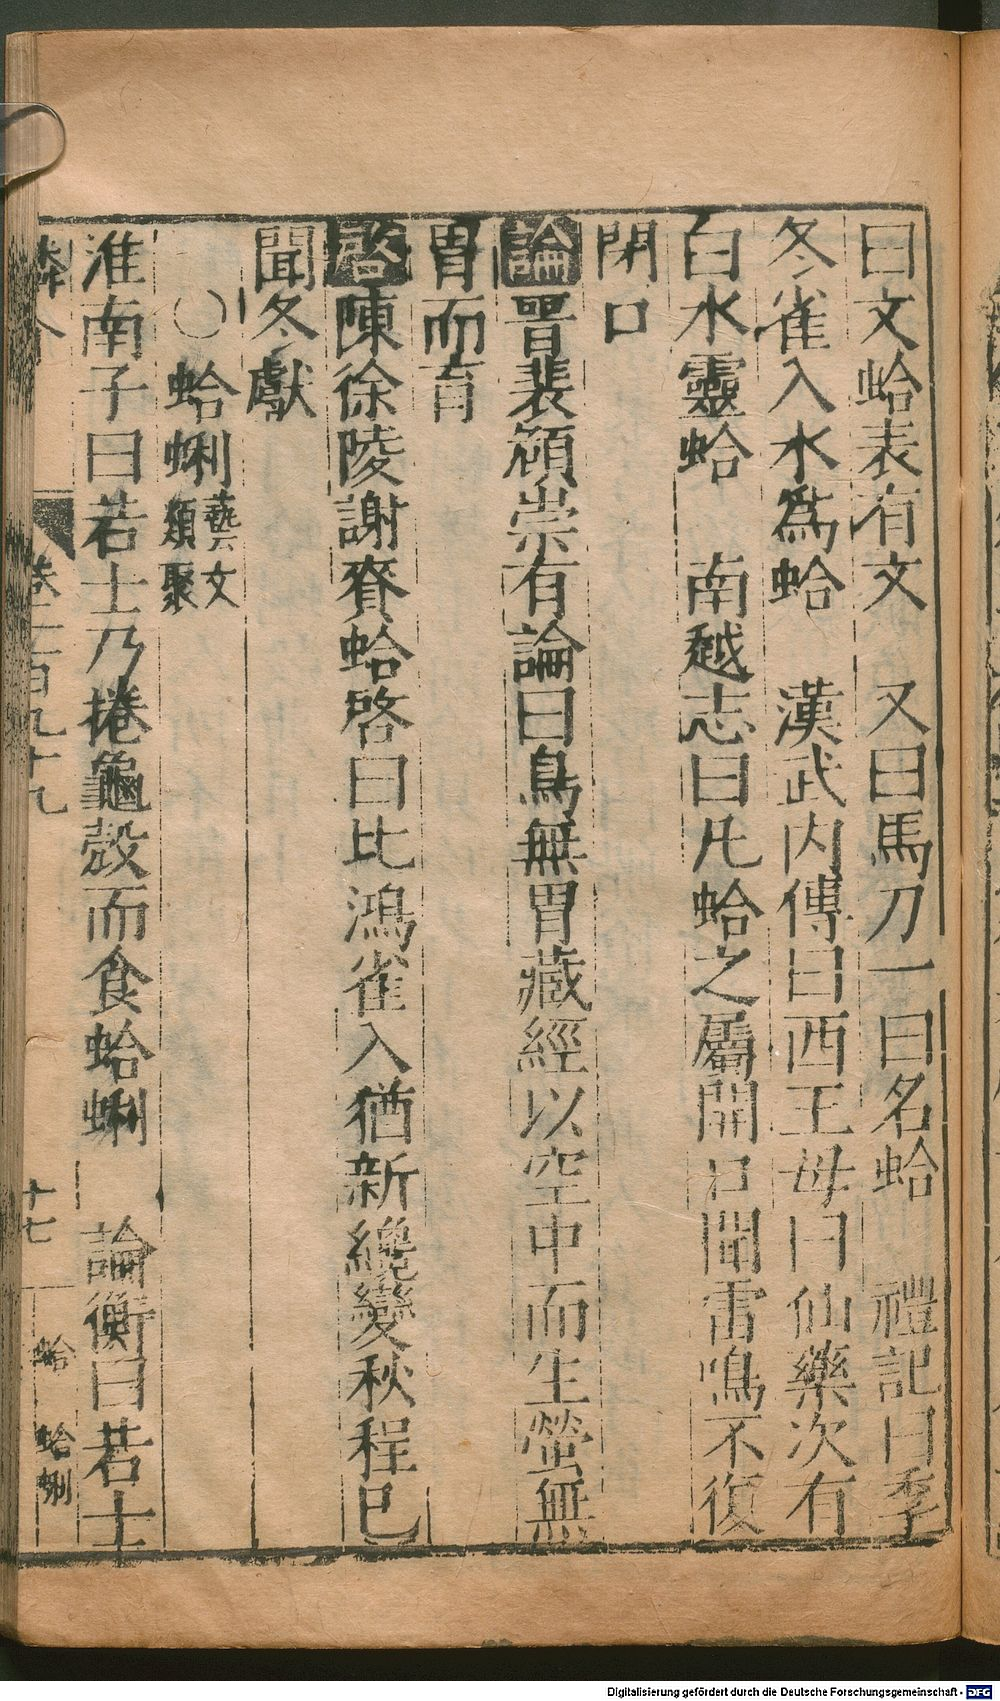 曰文蛤表有文　又曰馬刀一曰名蛤　禮記曰季
冬雀入水為蛤　漢武內傳曰西王母曰仙藥次有
白水靈蛤　南越志曰凡蛤之屬開口聞雷鳴不復
閉口
論晉裴頠崇有論曰鳥無胃藏經以空中而生螢無
胃而育
啓陳徐陵謝賚蛤啓曰比鴻雀入猶新纔變秋程已
聞冬獻
○蛤蜊藝文類聚
淮南子曰若士乃捲龜殼而食蛤蜊　論衡曰若士
卷二百九十九
十七
蛤　蛤蜊
Digitalisierung gefördert durch die Deutsche Forschungsgemeinschaft - DFG